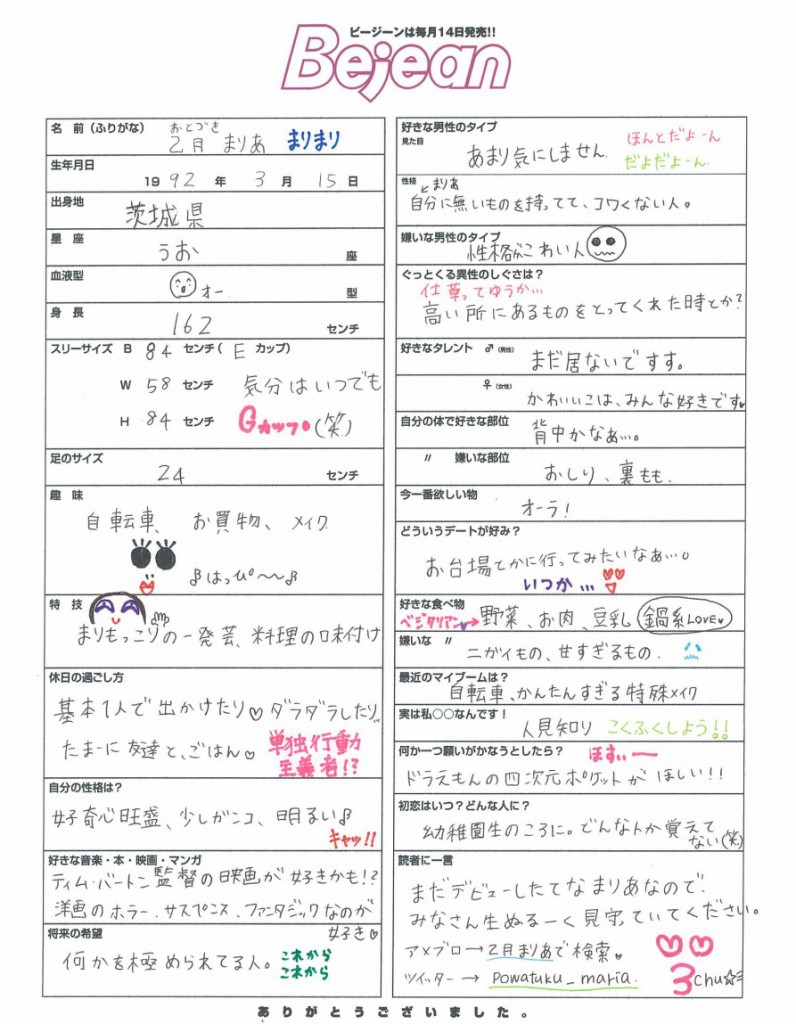 ビージーンは毎月14日発売!!
Bejean
名　前（ふりがな）
おとづき
乙月 まりあ まりまり
生年月日
19 92 年 3 月 15 日
出身地
茨城県
星　座
うお 座
血液型
オー 型
身　長
162 センチ
スリーサイズ B 84 センチ( E カップ)
W 58 センチ 気分はいつでも
H 84 センチ Gカップ(笑)
足のサイズ
24 センチ
趣　味
自転車、お買物、メイク
♪はっぴ〜〜♪
特　技
まりもっこりの一発芸、料理の味付け
休日の過ごし方
基本1人で出かけたり♡ダラダラしたり
たまーに友達と、ごはん♡ 単独行動
主義者!?
自分の性格は？
好奇心旺盛、少しガンコ、明るい♪
キャッ!!
好きな音楽・本・映画・マンガ
ティム・バートン監督の映画が好きかも!?
洋画のホラー、サスペンス、ファンタジックなのが
好き♡
将来の希望
何かを極められてる人。 これから
これから
好きな男性のタイプ
見た目
あまり気にしません ほんとだよーん
だよだよーん
性格
まりあ
自分に無いものを持ってて、コワくない人。
嫌いな男性のタイプ
性格がこわい人
ぐっとくる異性のしぐさは？
仕草ってゆうか…
高い所にあるものをとってくれた時とか?
好きなタレント ♂（男性）
まだ居ないですす。
♀（女性）
かわいいこは、みんな好きです♥
自分の体で好きな部位
背中かなぁ…。
〃　嫌いな部位
おしり、裏もも
今一番欲しい物
オーラ！
どういうデートが好み？
お台場とかに行ってみたいなぁ…。
いつか…
好きな食べ物
ベジタリアン→野菜、お肉、豆乳 鍋系LOVE♥
嫌いな　〃
ニガイもの、せすぎるもの.
最近のマイブームは？
自転車、かんたんすぎる特殊メイク
実は私○○なんです！
人見知り こくふくしよう!!
何か一つ願いがかなうとしたら？
ほすぃー
ドラえもんの四次元ポケットがほしい!!
初恋はいつ？どんな人に？
幼稚園生のころに。どんな人か覚えて
ない(笑)
読者に一言
まだデビューしたてなまりあなので、
みなさん生ぬるーく見守ていてください。
アメブロ→乙月まりあで検索♥
ツイッター→ powatuku_maria.
3chu☆ミ
ありがとうございました。